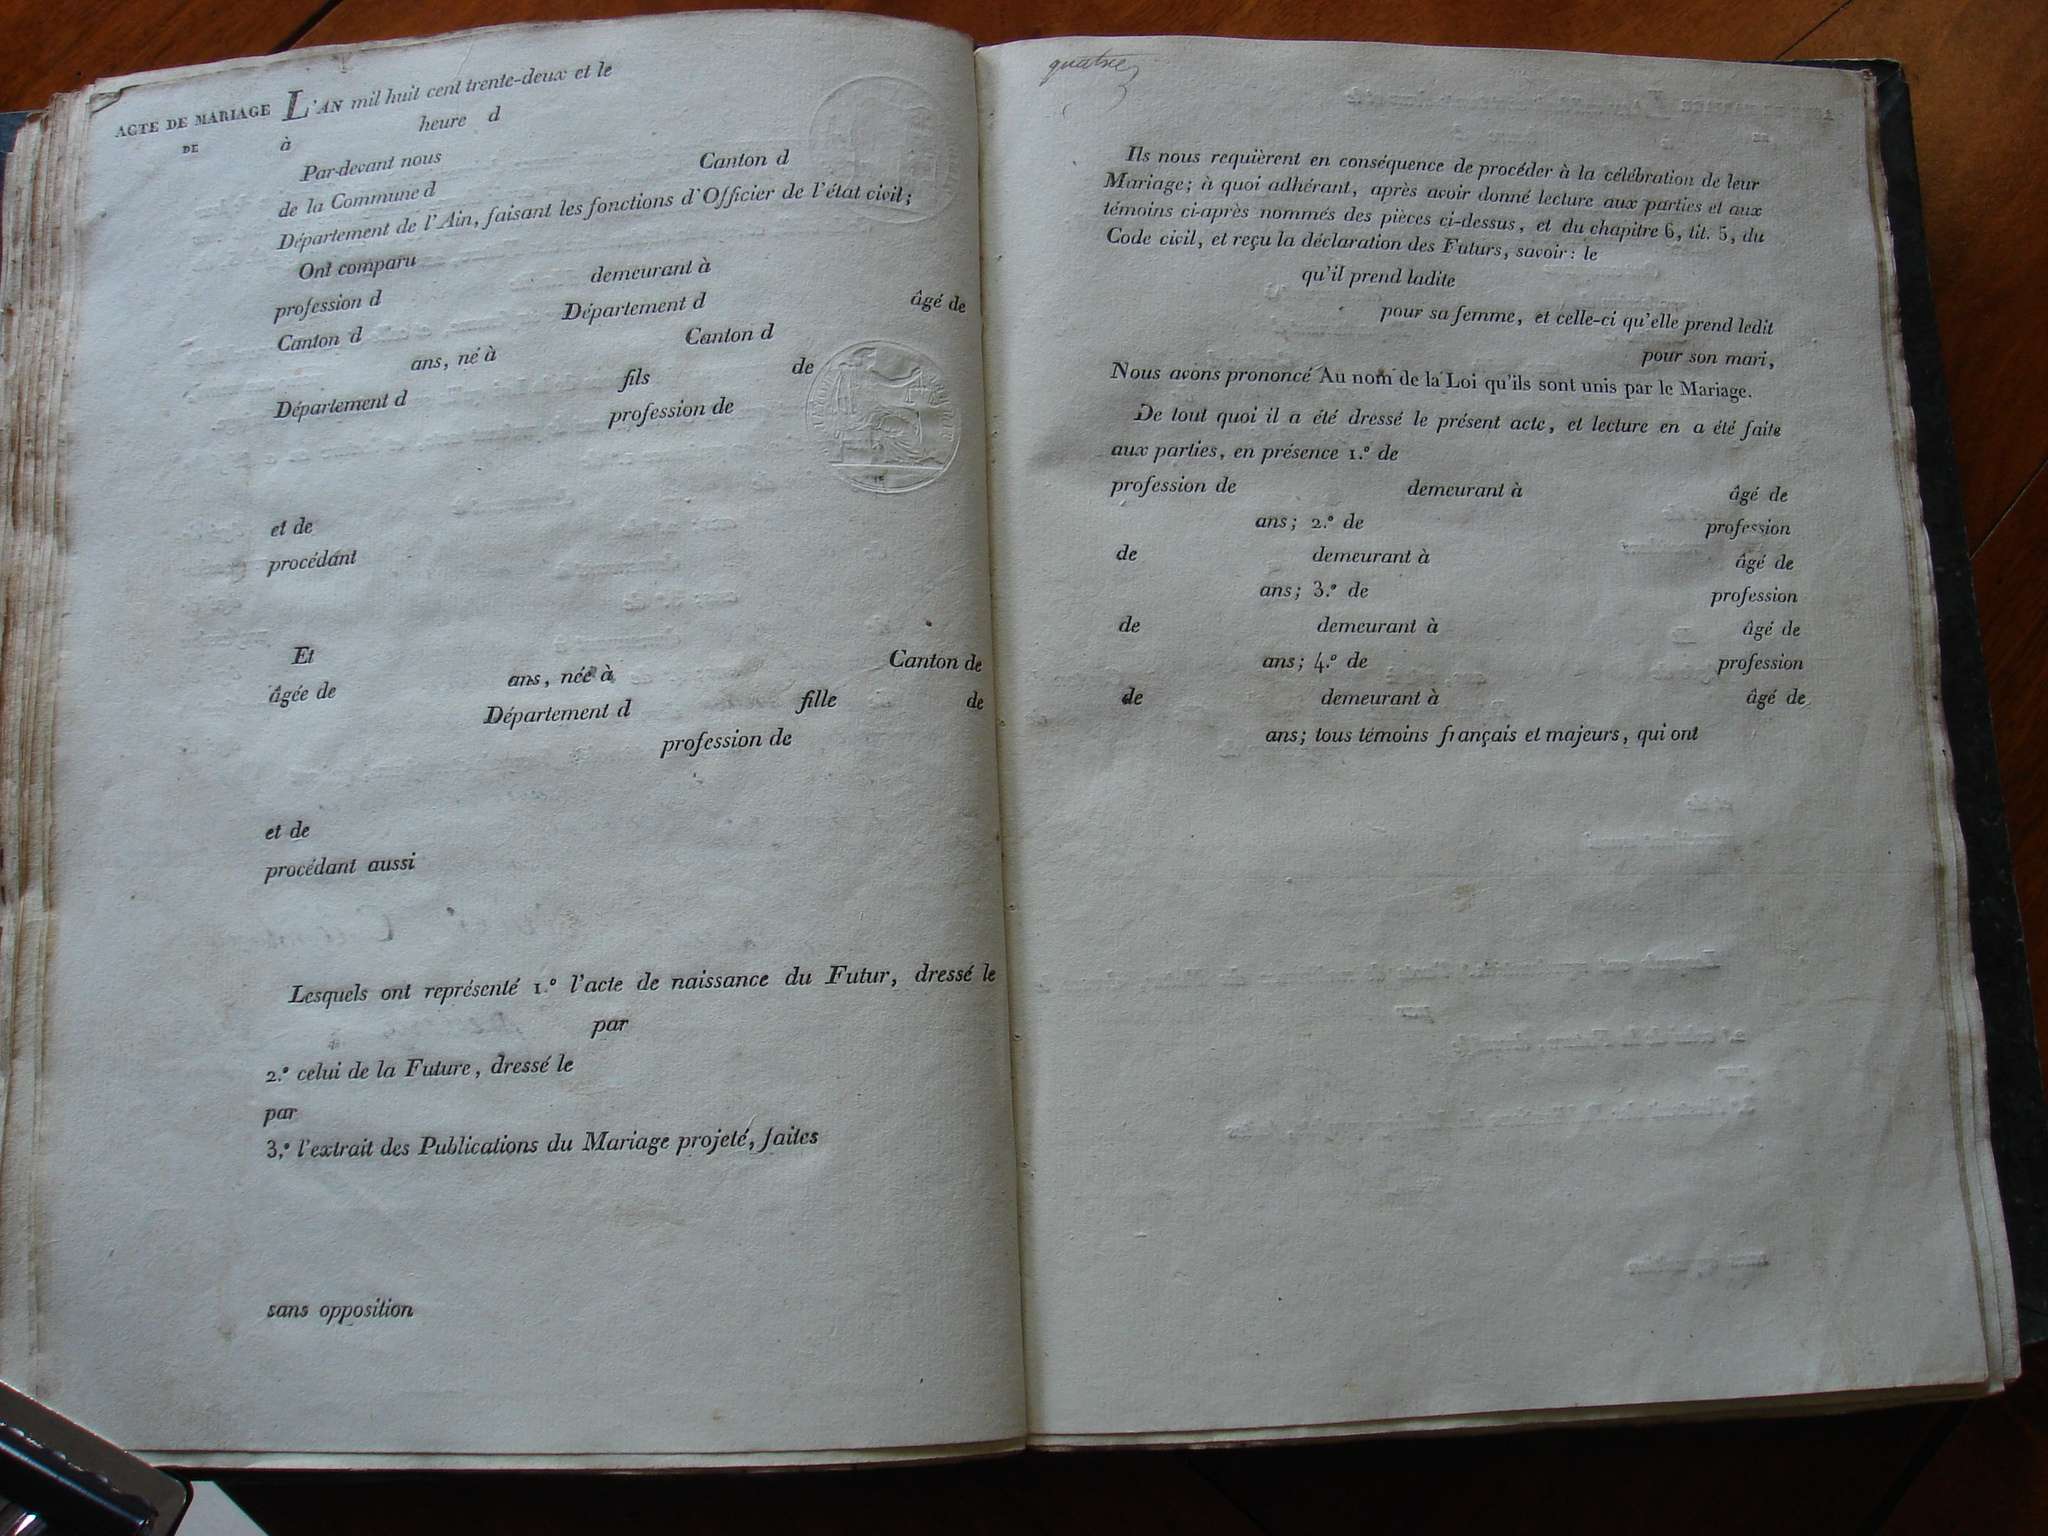 ACTE DE MARIAGE L'AN mil huit cent trente-deux et le
DE à heure d
Par-devant nous
de la Commune d Canton d
Département de l'Ain, faisant les fonctions d'Officier de l'état civil;
Ont comparu
profession d demeurant à
Canton d Département d âgé de
ans, né à Canton d
Département d fils de
profession de
et de
procédant
Et
âgée de ans, née à Canton de
Département d fille de
profession de
et de
procédant aussi
Lesquels ont représenté 1.º l'acte de naissance du Futur, dressé le
par
2.º celui de la Future, dressé le
par
3.º l'extrait des Publications du Mariage projeté, faites
sans opposition
quatre
Ils nous requièrent en conséquence de procéder à la célébration de leur
Mariage; à quoi adhérant, après avoir donné lecture aux parties et aux
témoins ci-après nommés des pièces ci-dessus, et du chapitre 6, tit. 5, du
Code civil, et reçu la déclaration des Futurs, savoir: le
qu'il prend ladite
pour sa femme, et celle-ci qu'elle prend ledit
pour son mari,
Nous avons prononcé Au nom de la Loi qu'ils sont unis par le Mariage.
De tout quoi il a été dressé le présent acte, et lecture en a été faite
aux parties, en présence 1.º de
profession de demeurant à âgé de
ans; 2.º de profession
de demeurant à âgé de
ans; 3.º de profession
de demeurant à âgé de
ans; 4.º de profession
de demeurant à âgé de
ans; tous témoins français et majeurs, qui ont